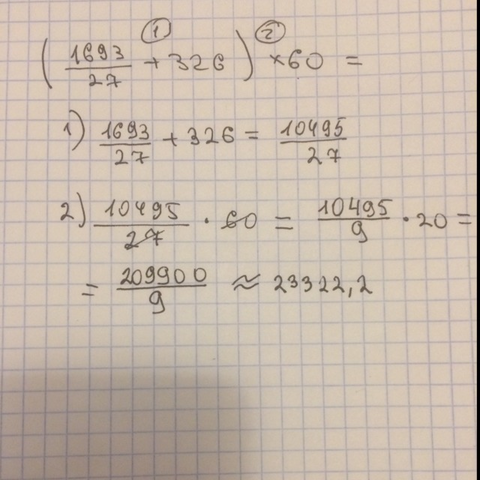 ① ②
(1693/27 + 326) × 60 =
1) 1693/27 + 326 = 10495/27
2) 10495/27 · 60 = 10495/9 · 20 =
= 209900/9 ≈ 23322,2